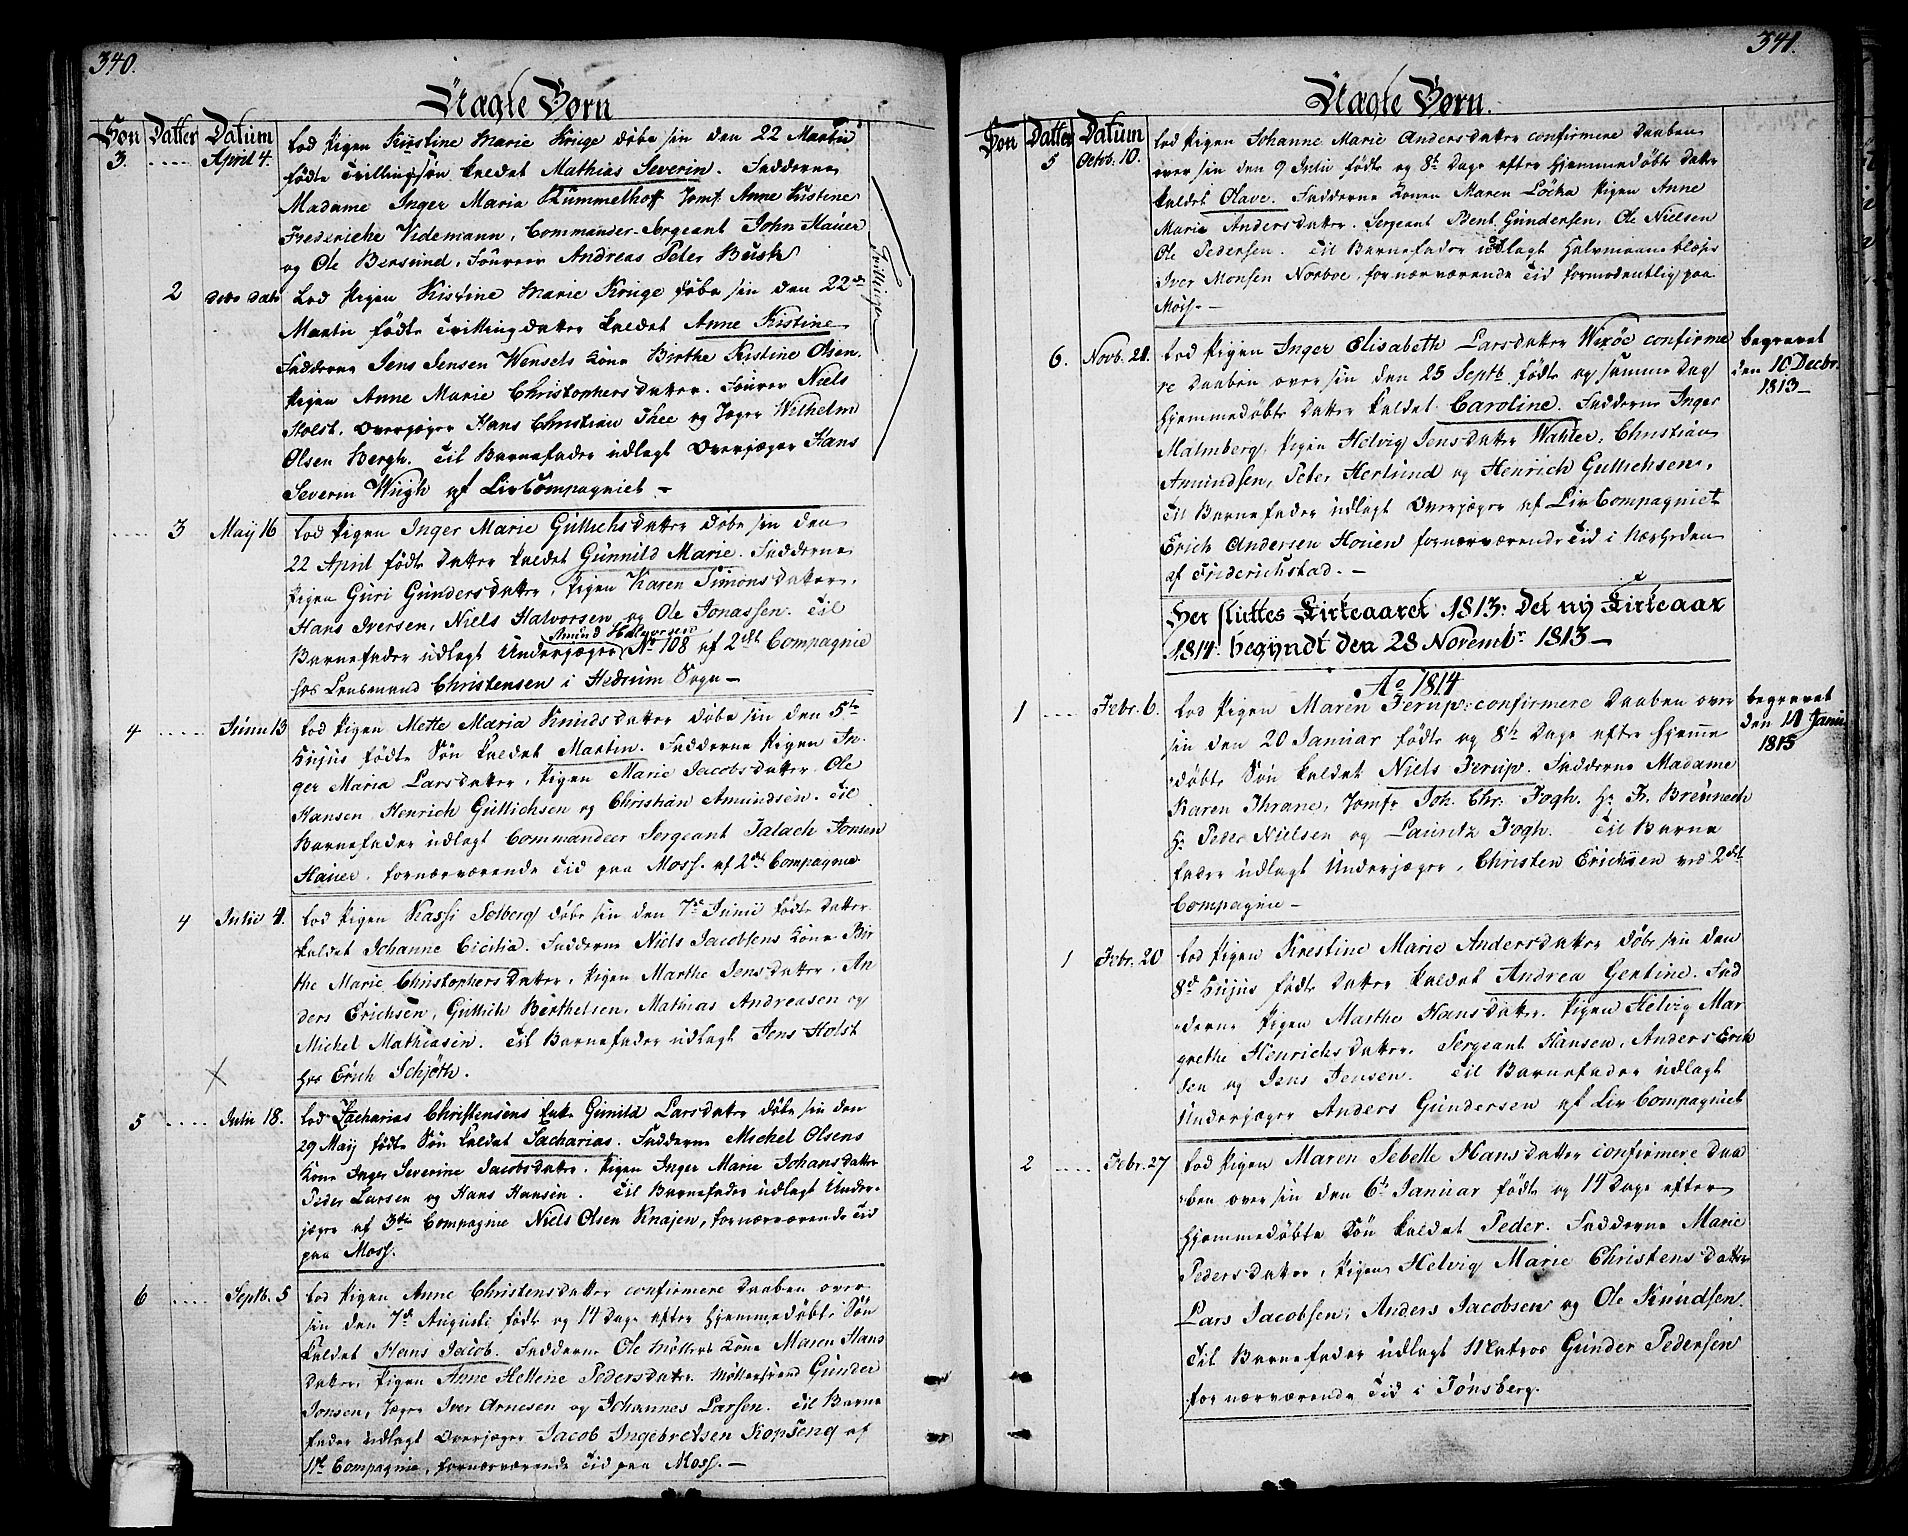 340.
Uægte Børn
Søn Datter Datum
3. ..... April 4. Lod Pigen Kirstine Marie Krüge døbe sin den 22 Martii
fødte Tvillingsøn kaldet Mathias Severin. Fadderne
Madame Inger Maria Kummelhoff Jomf. Anne Kistine
Frederiche Videmann, Commandeer-Sergeant John Haüer
og Ole Bersund, Foureer Andreas Peter Busk
2 dito dato Lod Pigen Kistine Marie Krüge døbe sin den 22de
Martii fødte Tvillingdatter kaldet Anne Kistine
Fadderne Jens Jensen Wensels Kone Birthe Kistine Olsen.
Pigen Anne Marie Christophersdatter. Fourer Niels
Holst, Overjæger Hans Christian Thee og Jæger Wilhelm
Olsen Bergh. Til Barnefader udlagt Overjæger Hans
Severin Wiigh af LivCompagniet.
Tvillinger
..... 3 Maÿ 16 Lod Pigen Inger Marie Güllichsdatter døbe sin den
22 April fødte Datter kaldet Günnild Marie. Fadderne
Pigen Guri Gündersdatter, Pigen Karen Simonsdatter,
Hans Iversen, Niels Halvorsen og Ole Jonassen. Til
Barnefader udlagt Underjæger Amund Halvorsen No 108 af 2det Compagnie
hos Lensmand Christensen i Hedrum Sogn
4 ..... Junii 13 Lod Pigen Mette Maria Knudsdatter døbe sin den 5te
hujus fødte Søn kaldet Martin. Fadderne Pigen In-
ger Maria Larsdatter, Pigen Marie Jacobsdatter, Ole
Hansen, Henrich Güllichsen og Christian Amundsen. Til
Barnefader udlagt Commandeer Sergeant Jalach Jonsen
Haüer, fornærværende Tid paa Moss. af 2det Compagnie
4 Julii 4. Lod Pigen Kassi Solberg døbe sin den 7de Junii fødte Datter
kaldet Johanne Cicilia. Fadderne Niels Jacobsens Kone Bir-
the Marie Christophersdatter, Pigen Marthe Jensdatter, An-
ders Erichsen, Güllich Berthelsen, Mathias Andreasen og
Michel Mathiasen. Til Barnefader udlagt Jens Holst
hos Erich Schjøth.
5 ..... Julii 18. Lod Zacharias Christensens Enke Günild Larsdatter døbe sin den
29 Maÿ fødte Søn kaldet Sacharias. Fadderne Michel Olsens
Kone Inger Severine Jacobsdatter. Pigen Inger Marie Johansdatter
Peder Larsen og Hans Hansen. Til Barnefader udlagt Under-
jæger af 3die Compagnie Niels Olsen Knajen, fornærværende Tid
paa Moss.
6 ..... Septb. 5 Lod Pigen Anne Christensdatter confirmere Daaben over
sin den 7de Augusti fødte og 14 Dage efter hjemmedøbte Søn
kaldet Hans Jacob. Fadderne Ole Møllers Kone Maren Hans-
datter, Pigen Anne Hellene Pedersdatter. Møllersvend Günder
Jonsen, Jæger Iver Arnesen og Johannes Larsen. Til Barne-
fader udlagt Overjæger Jacob Ingebretsen Kopseng af
1ste Compagnie, fornærværende Tid paa Moss.
341.
Uægte Børn.
Søn Datter Datum
5 Octob. 10. Lod Pigen Johanne Marie Andersdatter confirmere Daaben
over sin den 9 Julii fødte og 8te Dage efter hjemmedøbte Datter
kaldet Olave. Fadderne Konen Maren Löcka Pigen Anne
Marie Andersdatter. Sergeant Bent Gündersen, Ole Nielsen
Ole Pedersen. Til Barnefader udlagt Halvmaaneblæser
Iver Monsen Norboe, fornærværende Tid formodentlig paa
Moss.
6. Novb. 21. Lod Pigen Inger Elisabeth Larsdatter Wixöe confirme-
re Daaben over sin den 25 Septb. fødte og samme Dag
hjemmedøbte Datter kaldet Caroline. Fadderne Inger
Malmberg, Pigen Helvig Jensdatter Wahler, Christian
Amundsen, Peter Herlund og Henrich Güllichsen.
Til Barnefader udlagt Overjæger af LivCompagniet
Erich Andersen Houen fornærværende Tid i Nærheden
af Friderichstad.
begravet
den 10 Decbr.
1813
Her sluttes Kirkeaaret 1813: Det ny Kirkeaar
1814 begyndt den 28 Novembr 1813
Ao 1814
1 .... Febr. 6. Lod Pigen Maren Ferup confirmere Daaben over
sin den 20 Januar fødte og 8te Dage efter hjemme
døbte Søn kaldet Niels Ferup. Fadderne Madame
Karen Thrane, Jomfr Joh. Chr. Fogh. Hr Fr. Brennech
Hr Peder Nielsen og Lauritz Fogh. Til Barne
fader udlagt Underjæger, Christen Erichsen ved 2det
Compagnie
begravet
den 11 Janu.
1815
1 Febr. 20 Lod Pigen Kirestine Marie Andersdatter døbe sin den
8de hujus fødte Datter kaldet Andrea Gentine. Fad-
derne Pigen Marthe Hansdatter. Pigen Helvig Mar-
grethe Henrichsdatter. Sergeant Hansen, Anders Erich
sen og Jens Jensen. Til Barnefader udlagt
Underjæger Anders Gündersen af Liv Compagniet
2 .... Febr. 27 Lod Pigen Maren Sebelle Hansdatter confirmere Daa-
ben over sin den 6te Januar fødte og 14 Dage efter
hjemmedøbte Søn kaldet Peder. Fadderne Marie
Pedersdatter, Pigen Helvig Marie Christensdatter
Lars Jacobsen, Anders Jacobsen og Ole Knudsen.
Til Barnefader udlagt Matros Günder Pedersen
fornærværende Tid i Tønsberg.